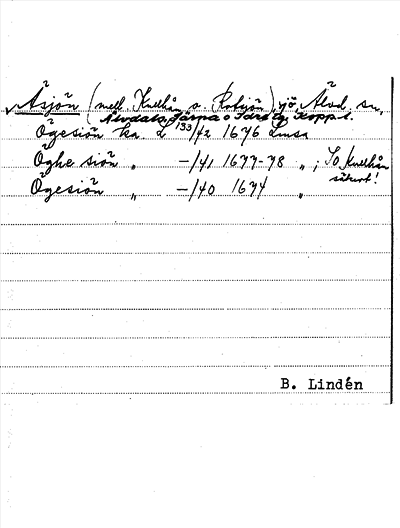 Åsjön (mell. Kvellån o. Rotsjön), sjö, Älvd. sn,
Älvdals, Särna o Idre tg, Kopp. l.
Ögesiön ka. L 133/42 1676 Lmsa
Öghe siön " -/41 1677-78 " ; SO Kvellån
säkert!
Ögesiön " -/40 1674 "
B. Lindén